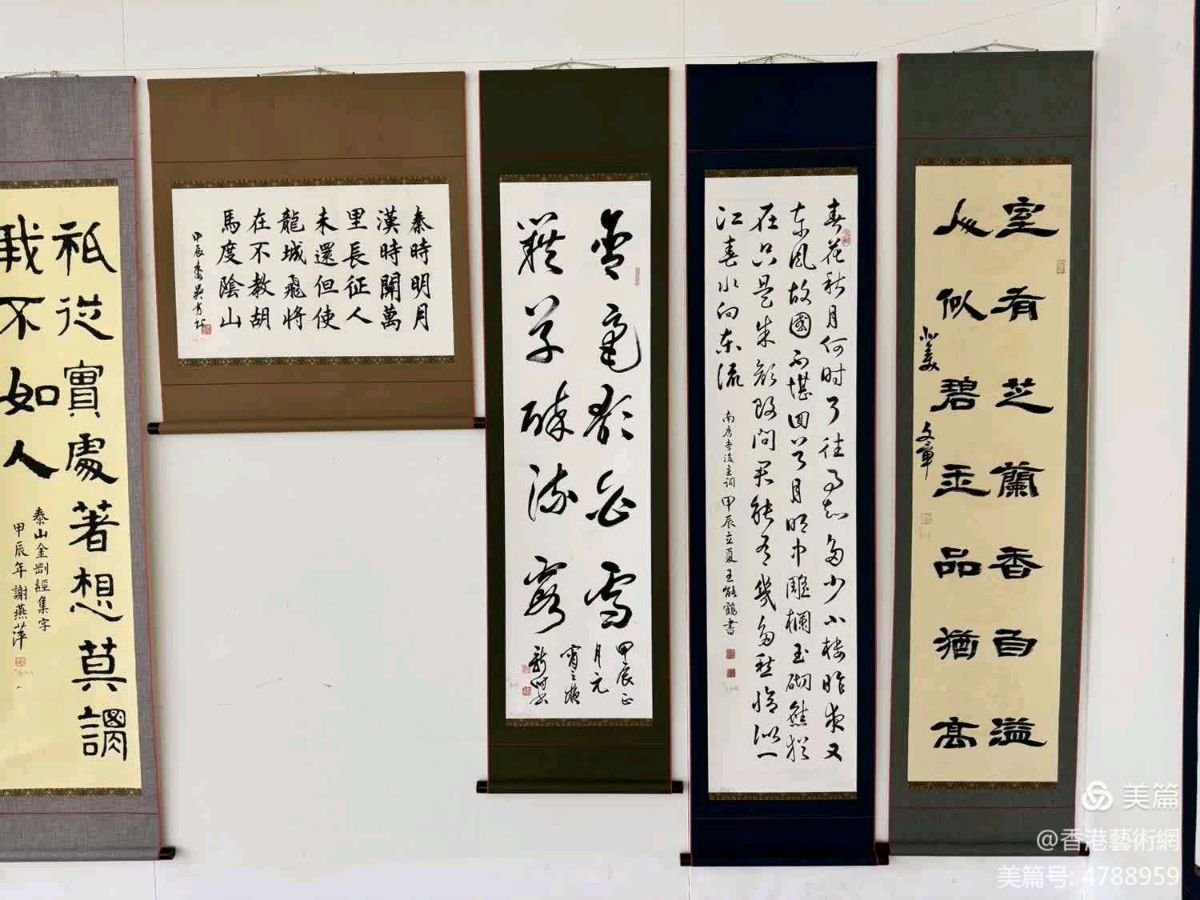 室有芝蘭香自溢
人似碧玉品猶高
春花秋月何時了往事知多少小樓昨夜又
東風故國不堪回首月明中雕欄玉砌應猶
在只是朱顏改問君能有幾多愁恰似一
江春水向東流
南唐李後主詞 甲辰立夏王能鶴書
含毫歌白雪
藉草醉流霞
甲辰正
月元
秦時明月
漢時關萬
里長征人
未還但使
龍城飛將
在不教胡
馬度陰山
甲辰
祇從實處著想莫謂
我不如人
泰山金剛經集字
甲辰年謝燕萍
美篇
@香港藝術網
美篇号: 4788959